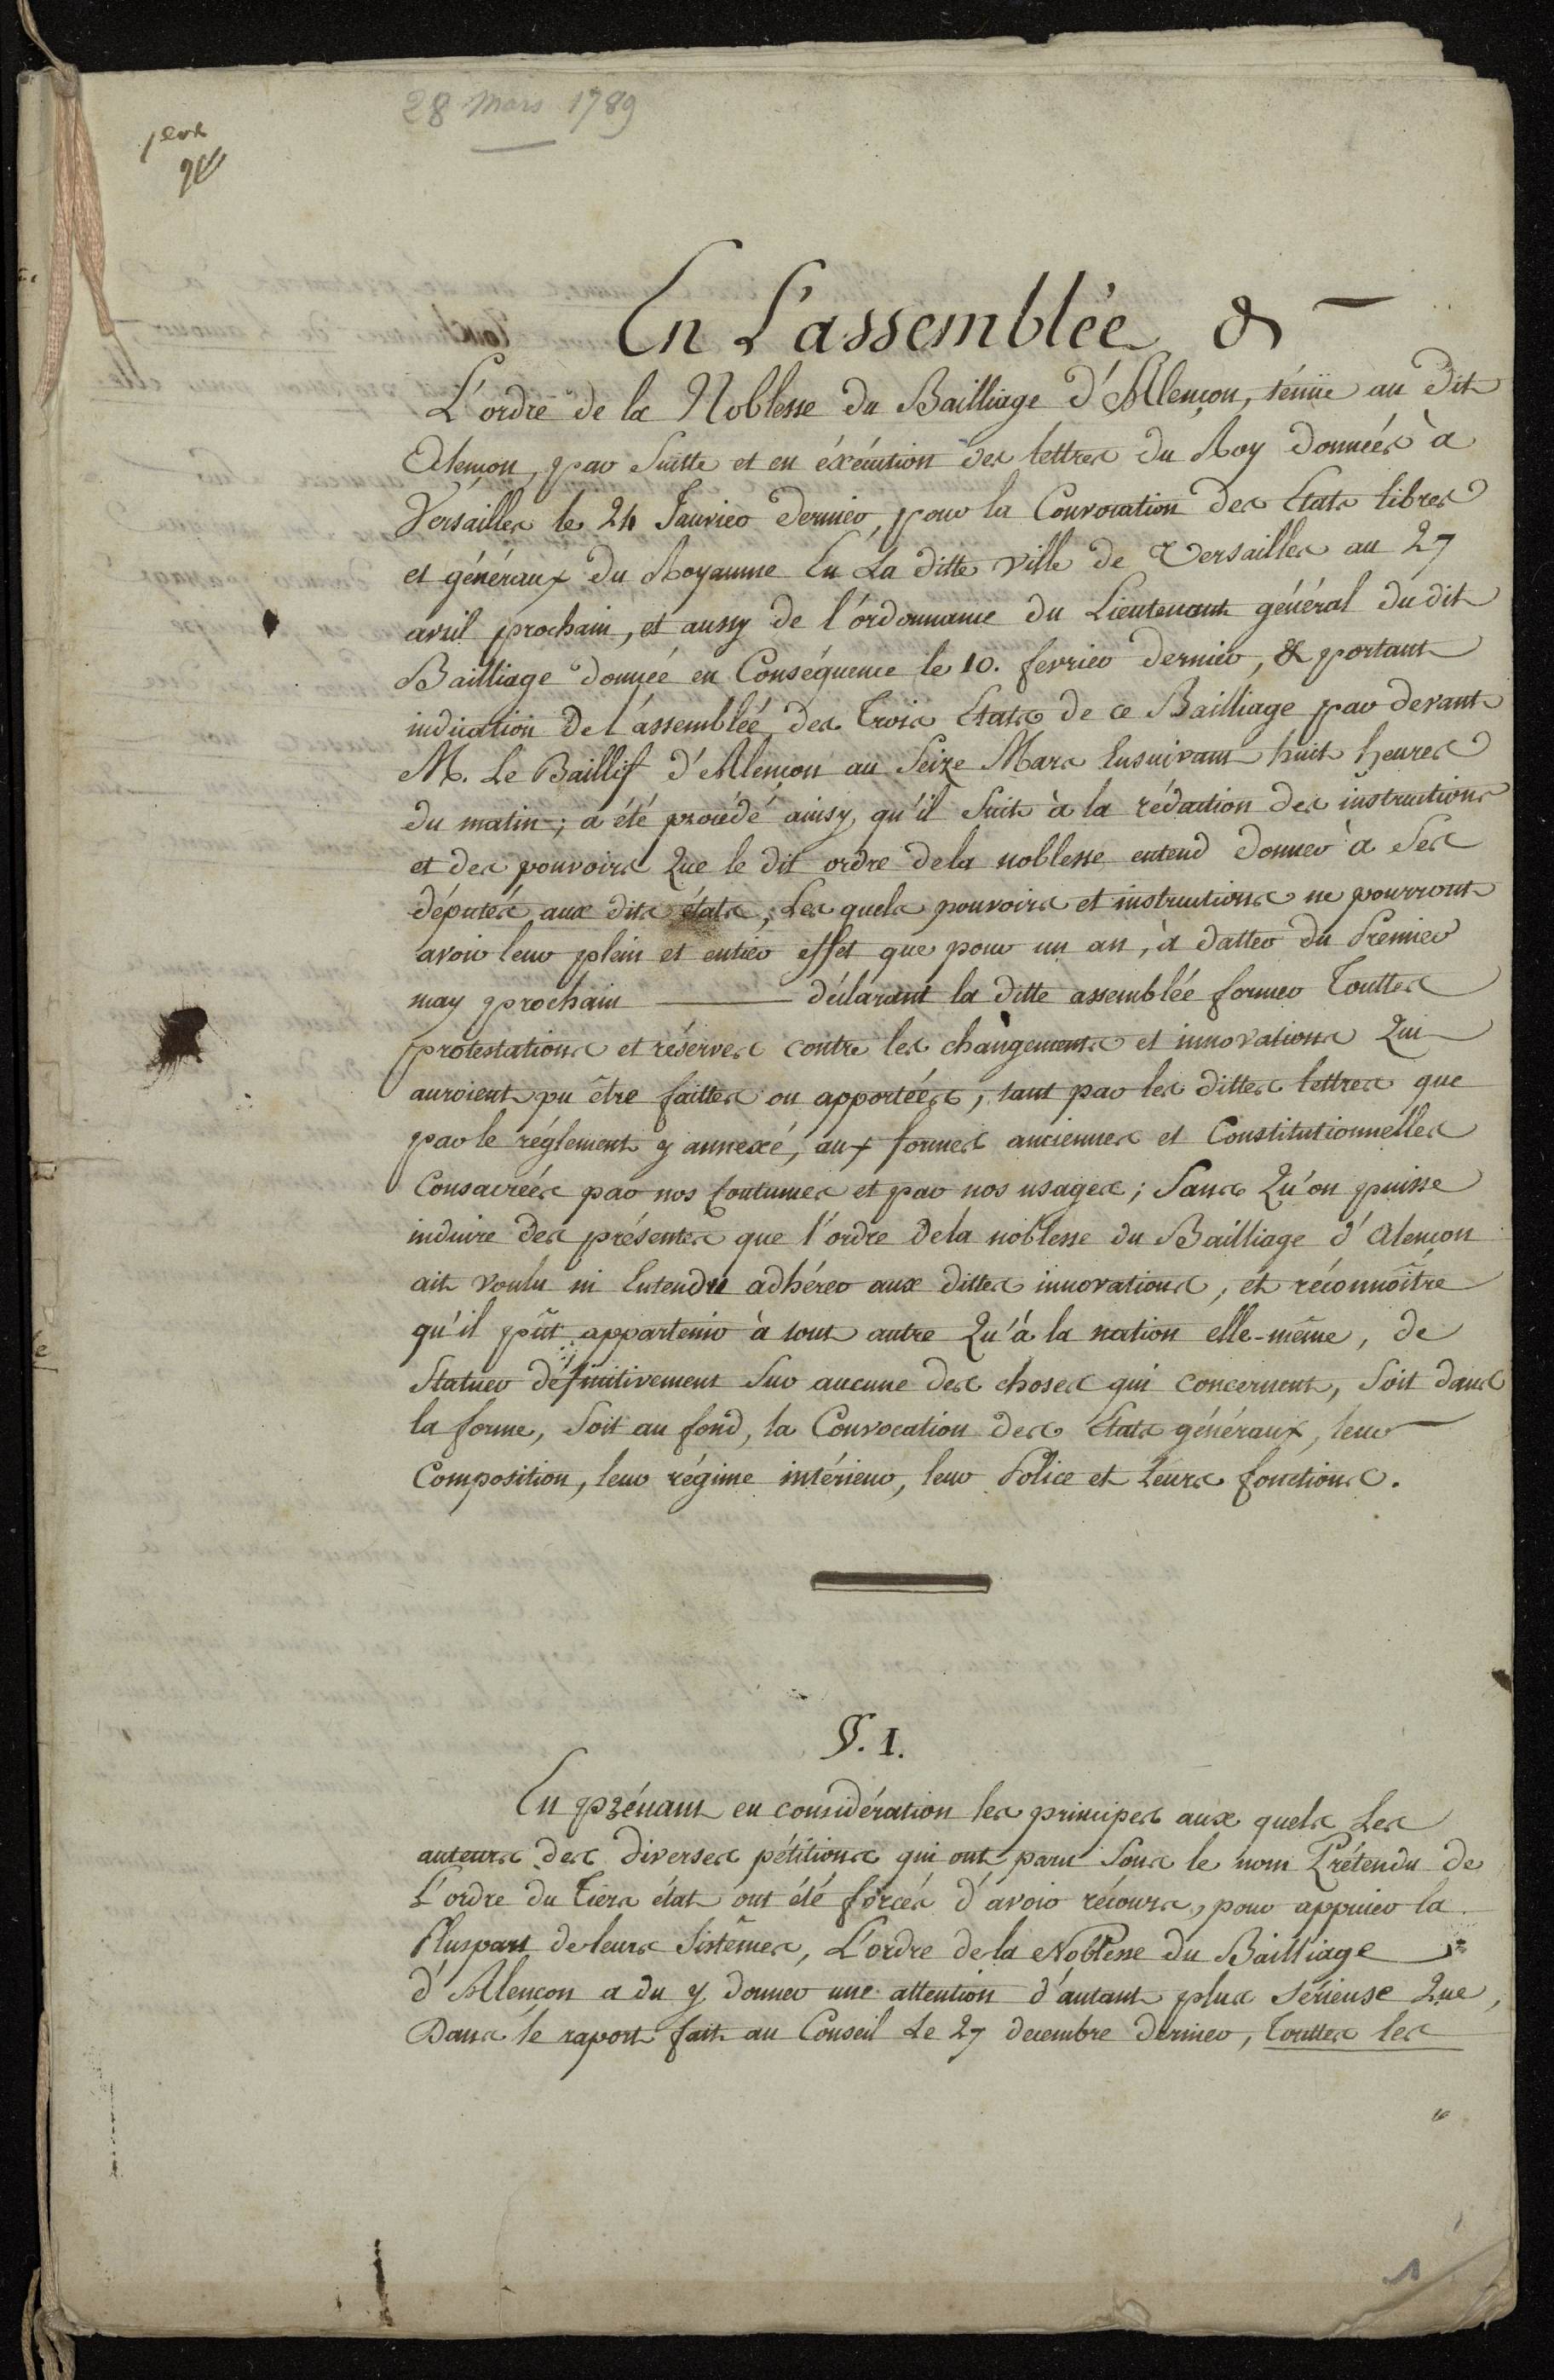 28 Mars 1789
En L'assemblée &
L'ordre de la Noblesse du Bailliage d'Alençon, ténüe au dit
Alençon, par Suitte et en éxécution des lettres du Roy données à
Versailles le 24 Janvier dernier, pour la Convocation des Etats libres
et généraux du Royaume En La ditte ville de Versailles au 27
avril prochain, et aussy de l'ordonnance du Lieutenant général du dit
Bailliage donnée en Conséquence le 10. fevrier dernier, & portant
indication De l'assemblée des Trois Etats de ce Bailliage par devant
M. Le Baillif d'Alençon au Seize Mars Ensuivant huit heures
du matin; a été procédé ainsy qu'il Suit à la rédaction des instructions
et des pouvoirs Que le dit ordre dela noblesse entend donner à Ses
députés aux dits états, Les quels pouvoirs et instructions ne pourront
avoir leur plein et entier effet que pour un an, à datter du Premier
may prochain ——— déclarant la ditte assemblée former Touttes
protestations et réserves contre les changements et innovations Qui
auroient pu être faittes ou apportées, tant par les dittes lettres que
par le réglement y annexé, aux formes anciennes et Constitutionnelles
Consacrées par nos Coutumes et par nos usages; Sans Qu'on puisse
induire des présentes que l'ordre Dela noblesse du Bailliage d'Alençon
ait voulu ni Entendu adhérer aux dittes innovations, et réconnoître
qu'il pût appartenir à tout autre Qu'à la nation elle-même, de
Statuer définitivement Sur aucune des choses qui concernent, Soit dans
la forme, Soit au fond, la Convocation des Etats généraux, leur
Composition, leur régime intérieur, leur Police et Leurs fonctions.
§. 1.
En prénant en considération les principes aux quels Les
auteurs des diverses pétitions qui ont paru Sous le nom Prétendu de
L'ordre du Tiers état ont été forcés d'avoir récours, pour appuier la
Pluspart de leurs Sistêmes, L'ordre de la Noblesse du Bailliage
d'Alençon a du y donner une attention d'autant plus Sérieuse Que,
Dans le raport fait au Conseil Le 27 decembre dernier, Touttes les
1